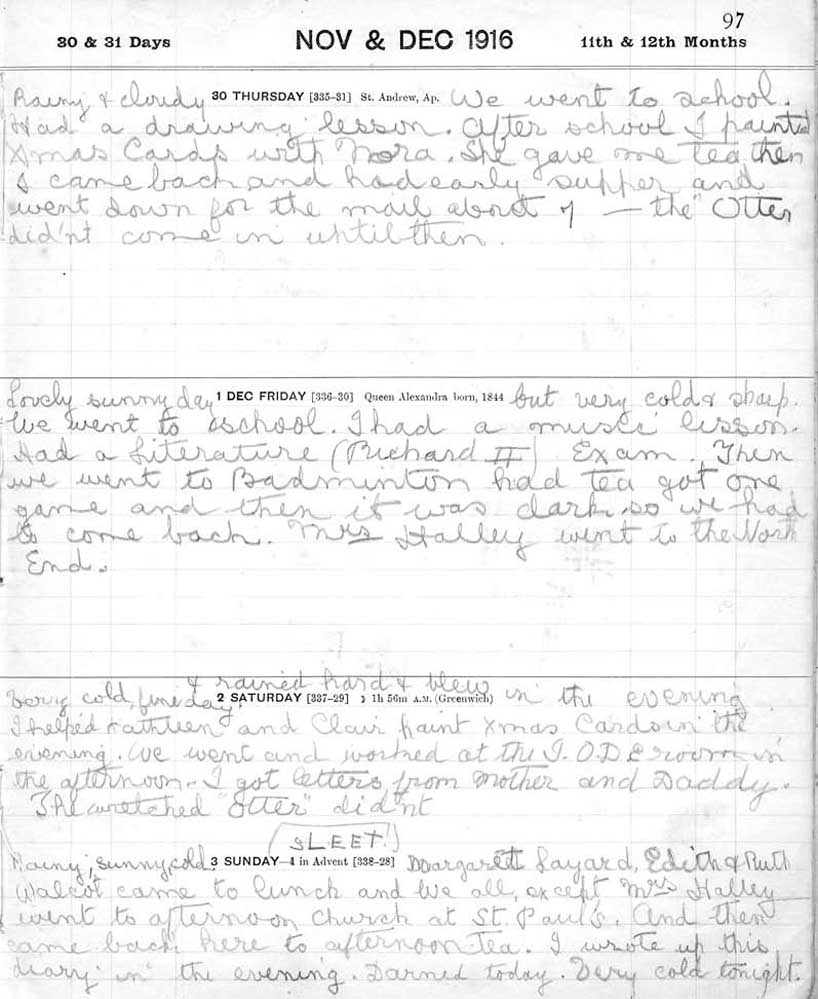 97
30 & 31 Days NOV & DEC 1916 11th & 12th Months
Rainy & cloudy 30 THURSDAY [335-31] St. Andrew, Ap. We went to school.
Had a drawing lesson. After school I painted
Xmas Cards with Nora. She gave me tea then
I came back and had early supper and
went down for the mail about 7 — the "Otter
did'nt come in until then.
Lovely sunny day 1 DEC FRIDAY [336-30] Queen Alexandra born, 1844 but very cold & sharp.
We went to school. I had a music lesson.
Had a Literature (Richard II) Exam. Then
we went to Badminton had tea got one
game and then it was dark so we had
to come back. Mrs Halley went to the North
End.
& rained hard & blew
Very cold, fine day. 2 SATURDAY [337-29] 1h 56m A.M. (Greenwich) in the evening
I helped Kathleen and Clair paint Xmas Cards in the
evening. We went and worked at the I.O.D.E room in
the afternoon. I got letters from Mother and Daddy.
The wretched "Otter" did'nt
(SLEET!)
Rainy, sunny, cold. 3 SUNDAY—1 in Advent [338-28] Margarett Layard, Edith & Ruth
Walcot came to lunch and we all, except Mrs Halley
went to afternoon church at St. Paul's. And then
came back here to afternoon tea. I wrote up this
diary in the evening. Darned today. Very cold tonight.